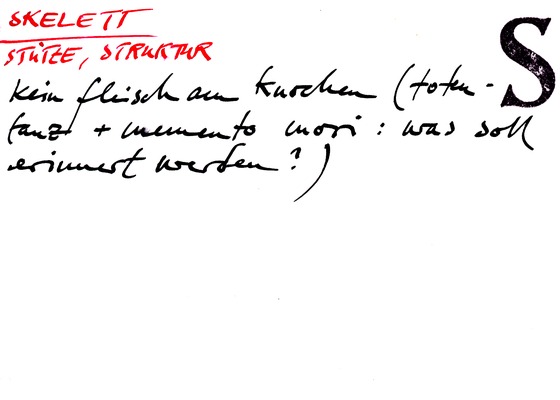 SKELETT
S
STÜTZE, STRUKTUR
kein fleisch am knochen (toten-
tanz + memento mori : was soll
erinnert werden?)